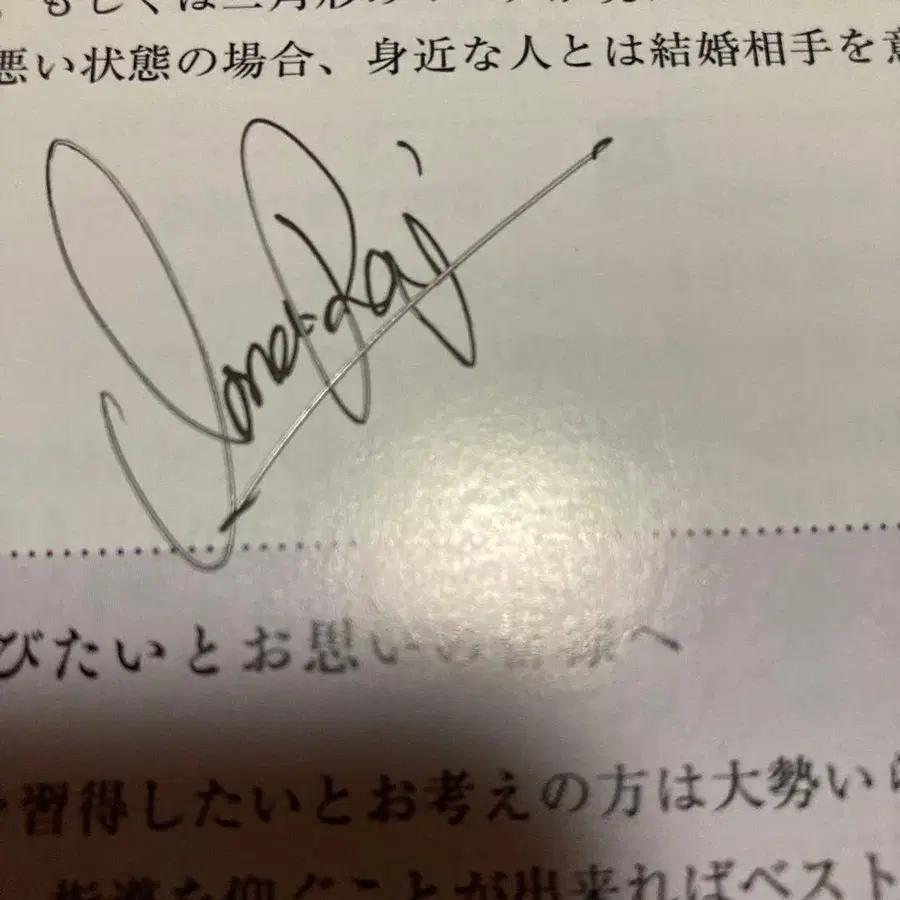 もしくは三角形の
悪い状態の場合、身近な人とは結婚相手を意
びたいとお思いの皆様へ
習得したいとお考えの方は大勢いら
指導を仰ぐことが出来ればベスト